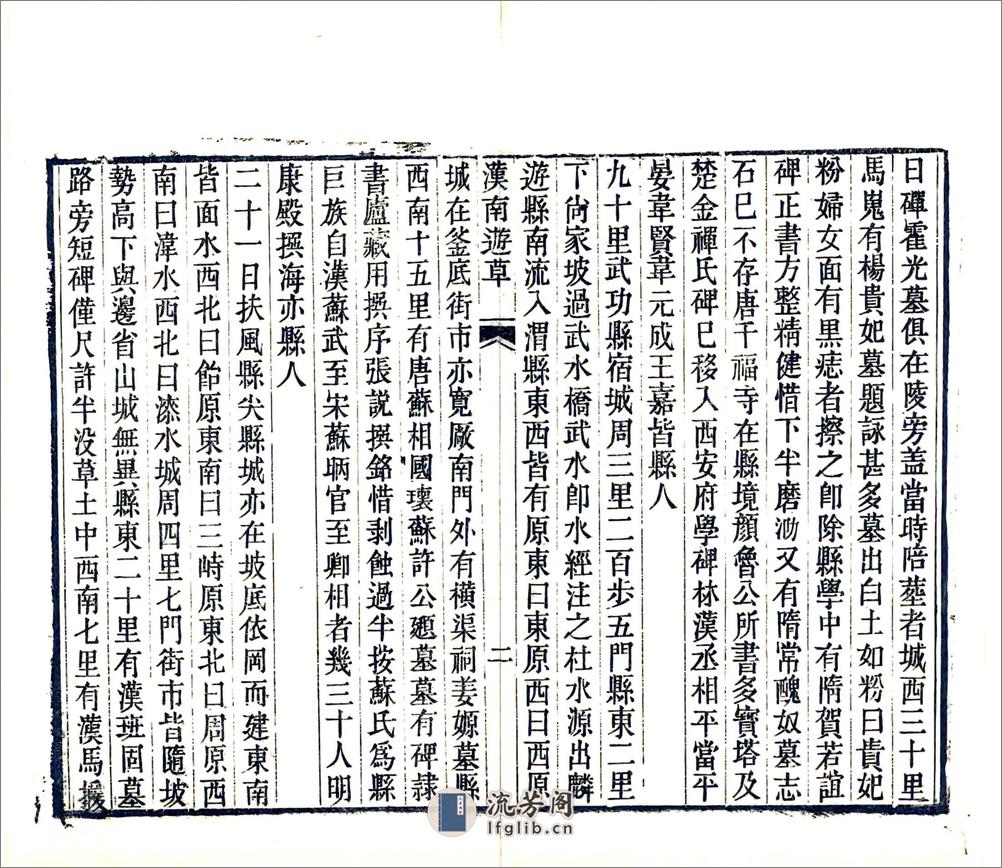 日磾霍光墓俱在陵旁蓋當時陪葬者城西三十里
馬嵬有楊貴妃墓題詠甚多墓出白土如粉曰貴妃
粉婦女面有黑痣者擦之卽除縣學中有隋賀若誼
碑正書方整精健惜下半磨泐又有隋常醜奴墓志
石已不存唐千福寺在縣境顏魯公所書多寶塔及
楚金禪氏碑已移入西安府學碑林漢丞相平當平
晏韋賢韋元成王嘉皆縣人
九十里武功縣宿城周三里二百步五門縣東二里
下尙家坡過武水橋武水卽水經注之杜水源出麟
遊縣南流入渭縣東西皆有原東曰東原西曰西原
漢南遊草
二
城在釜底街市亦寬厰南門外有橫渠祠姜嫄墓縣
西南十五里有唐蘇相國瓌蘇許公頲墓墓有碑隸
書廬藏用撰序張說撰銘惜剥蝕過半按蘇氏爲縣
巨族自漢蘇武至宋蘇昞官至卿相者幾三十人明
康殿撰海亦縣人
二十一日扶風縣尖縣城亦在坡底依岡而建東南
皆面水西北曰飴原東南曰三畤原東北曰周原西
南曰湋水西北曰漆水城周四里七門街市皆隨坡
勢高下與邊省山城無異縣東二十里有漢班固墓
路旁短碑僅尺許半没草土中西南七里有漢馬援
流芳阁
lfglib.cn